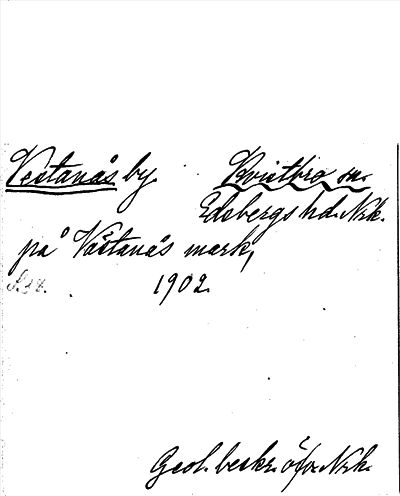 Vestanås by. Kvistbro sn.
Edsbergs hd. Nrk.
på Västanås mark,
1902.
Geol. beskr. öfv. Nrk.